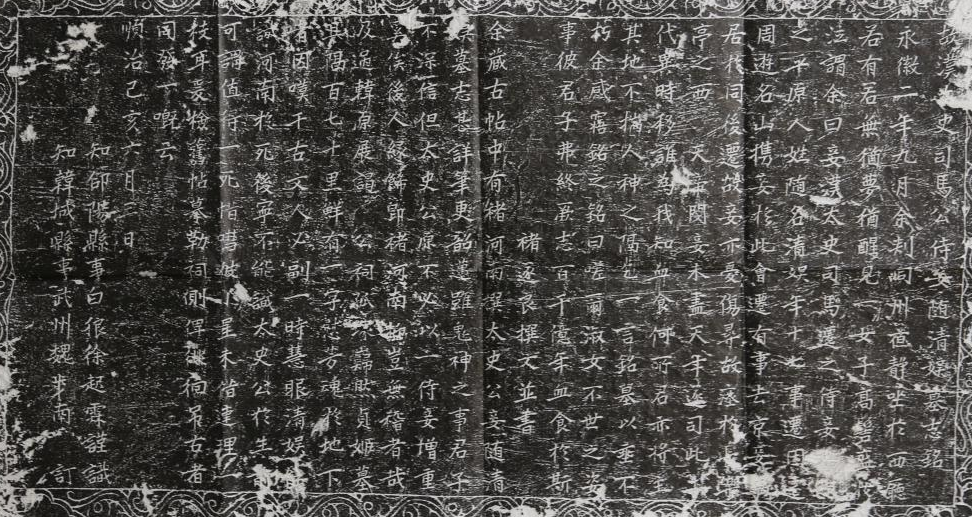 故漢太史司馬公侍妾随清娱墓志銘
永徽二年九月余刺同州夜静坐扵西廳
若有若無猶夢猶醒見一女子髙髻盛
泣謂余曰妾漢太史司馬遷之侍妾
之平原人姓随名清娱年十七事遷因
周遊名山携妾扵此會遷有事去京妾
居扵同後遷故妾亦憂傷尋故瘞扵
亭之西天帝閔妾未盡天年遂司此
代異時移誰為我知血食何所君亦将主
其地不揣人神之隔乞一言銘墓以垂不
朽余感寤銘之銘曰嗟爾淑女不世之姿
事彼君子弗終厥志百千億年血食扵斯
褚遂良撰文並書
余蔵古帖中有褚河南撰太史公妾随清
娱墓志甚詳筆更韶遠雖鬼神之事君子
不深信但太史公原不必以一侍妾增重
登侯後人緣飾即褚河南亦豈無稽者哉
及過韓原展謁公祠巍然貞姬墓
其隔百七十里鮮有一字慰芳魂扵地下
者因嘆千古文人必副一時慧眼清娱
識河南扵死後寧不能識太史公扵生前
可謂值得一死
技耳爰檢舊帖摹勒祠側俾徘徊吊古者
同發一嘅云
順治己亥六月三日
知郃陽縣事白狼徐起霖謹識
知韓城縣事武州魏 訂